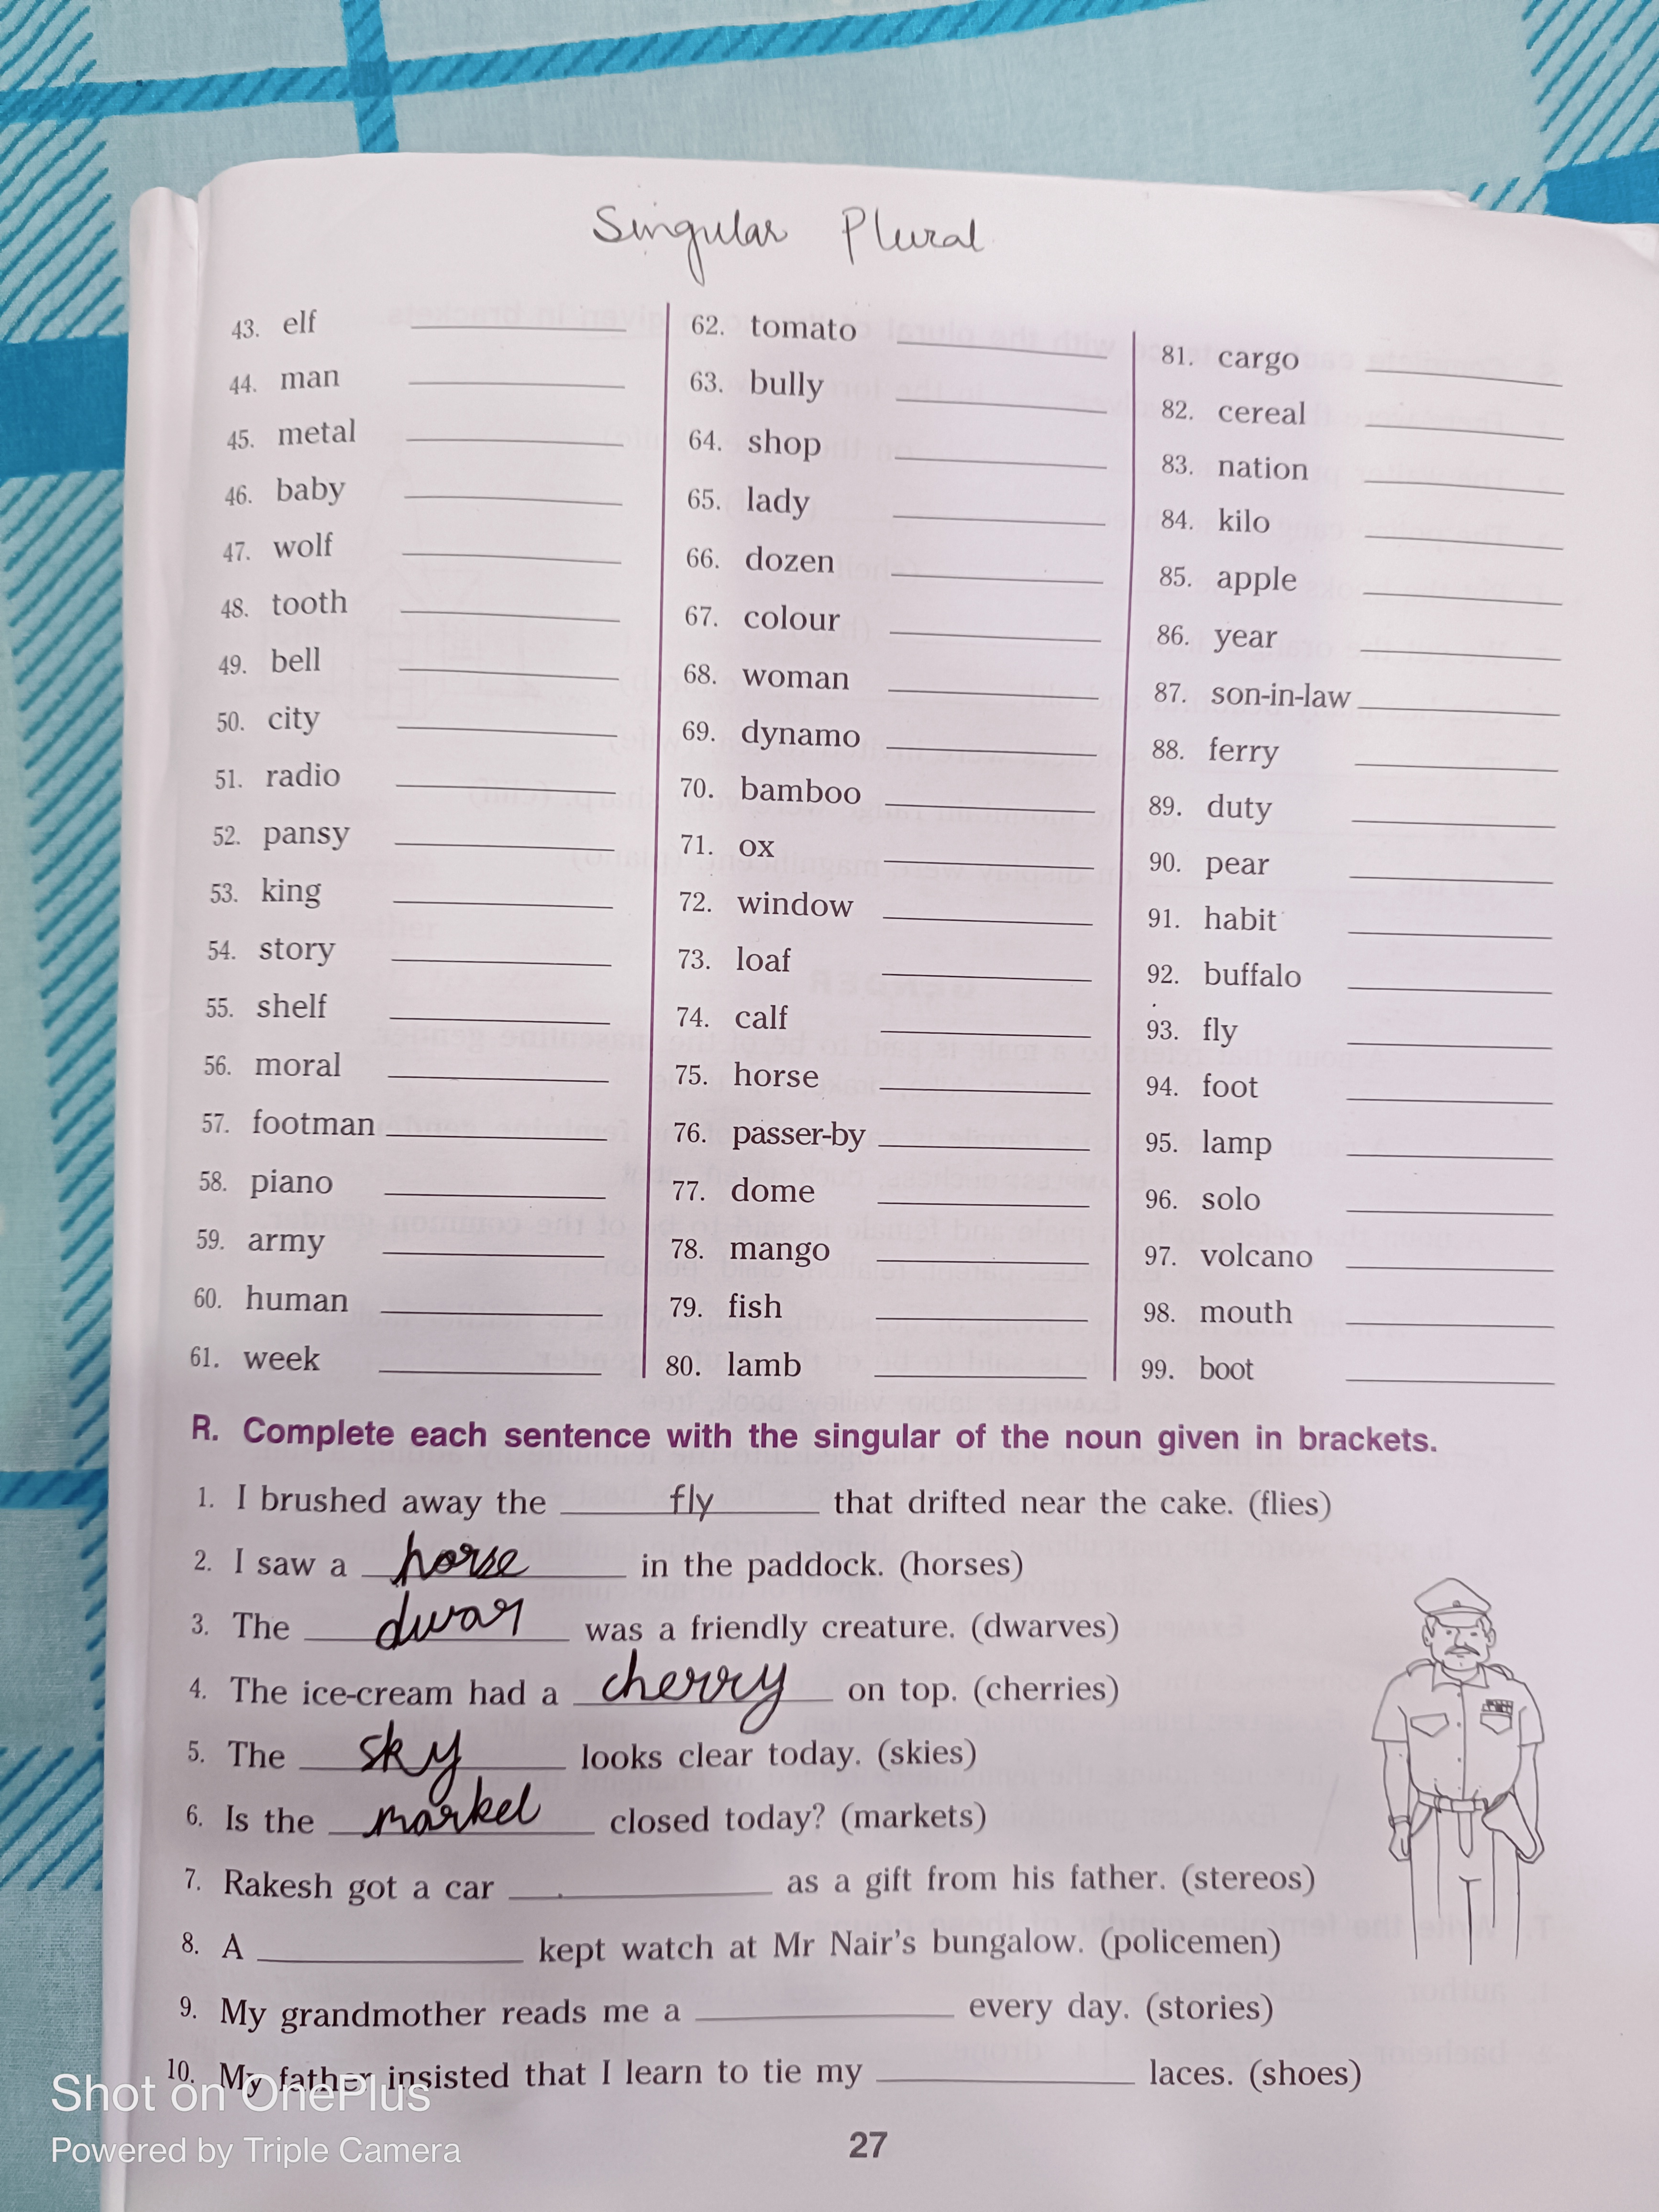 Singular Plural
43. elf
44. man
45. metal
46. baby
47. wolf
48. tooth
49. bell
50. city
51. radio
52. pansy
53. king
54. story
55. shelf
56. moral
57. footman
58. piano
59. army
60. human
61. week
62. tomato
63. bully
64. shop
65. lady
66. dozen
67. colour
68. woman
69. dynamo
70. bamboo
71. ox
72. window
73. loaf
74. calf
75. horse
76. passer-by
77. dome
78. mango
79. fish
80. lamb
81. cargo
82. cereal
83. nation
84. kilo
85. apple
86. year
87. son-in-law
88. ferry
89. duty
90. pear
91. habit
92. buffalo
93. fly
94. foot
95. lamp
96. solo
97. volcano
98. mouth
99. boot
R. Complete each sentence with the singular of the noun given in brackets.
1. I brushed away the fly that drifted near the cake. (flies)
2. I saw a horse in the paddock. (horses)
3. The dwar was a friendly creature. (dwarves)
4. The ice-cream had a cherry on top. (cherries)
5. The sky looks clear today. (skies)
6. Is the market closed today? (markets)
7. Rakesh got a car as a gift from his father. (stereos)
8. A kept watch at Mr Nair's bungalow. (policemen)
9. My grandmother reads me a every day. (stories)
10. My father insisted that I learn to tie my laces. (shoes)
27
Shot on OnePlus
Powered by Triple Camera